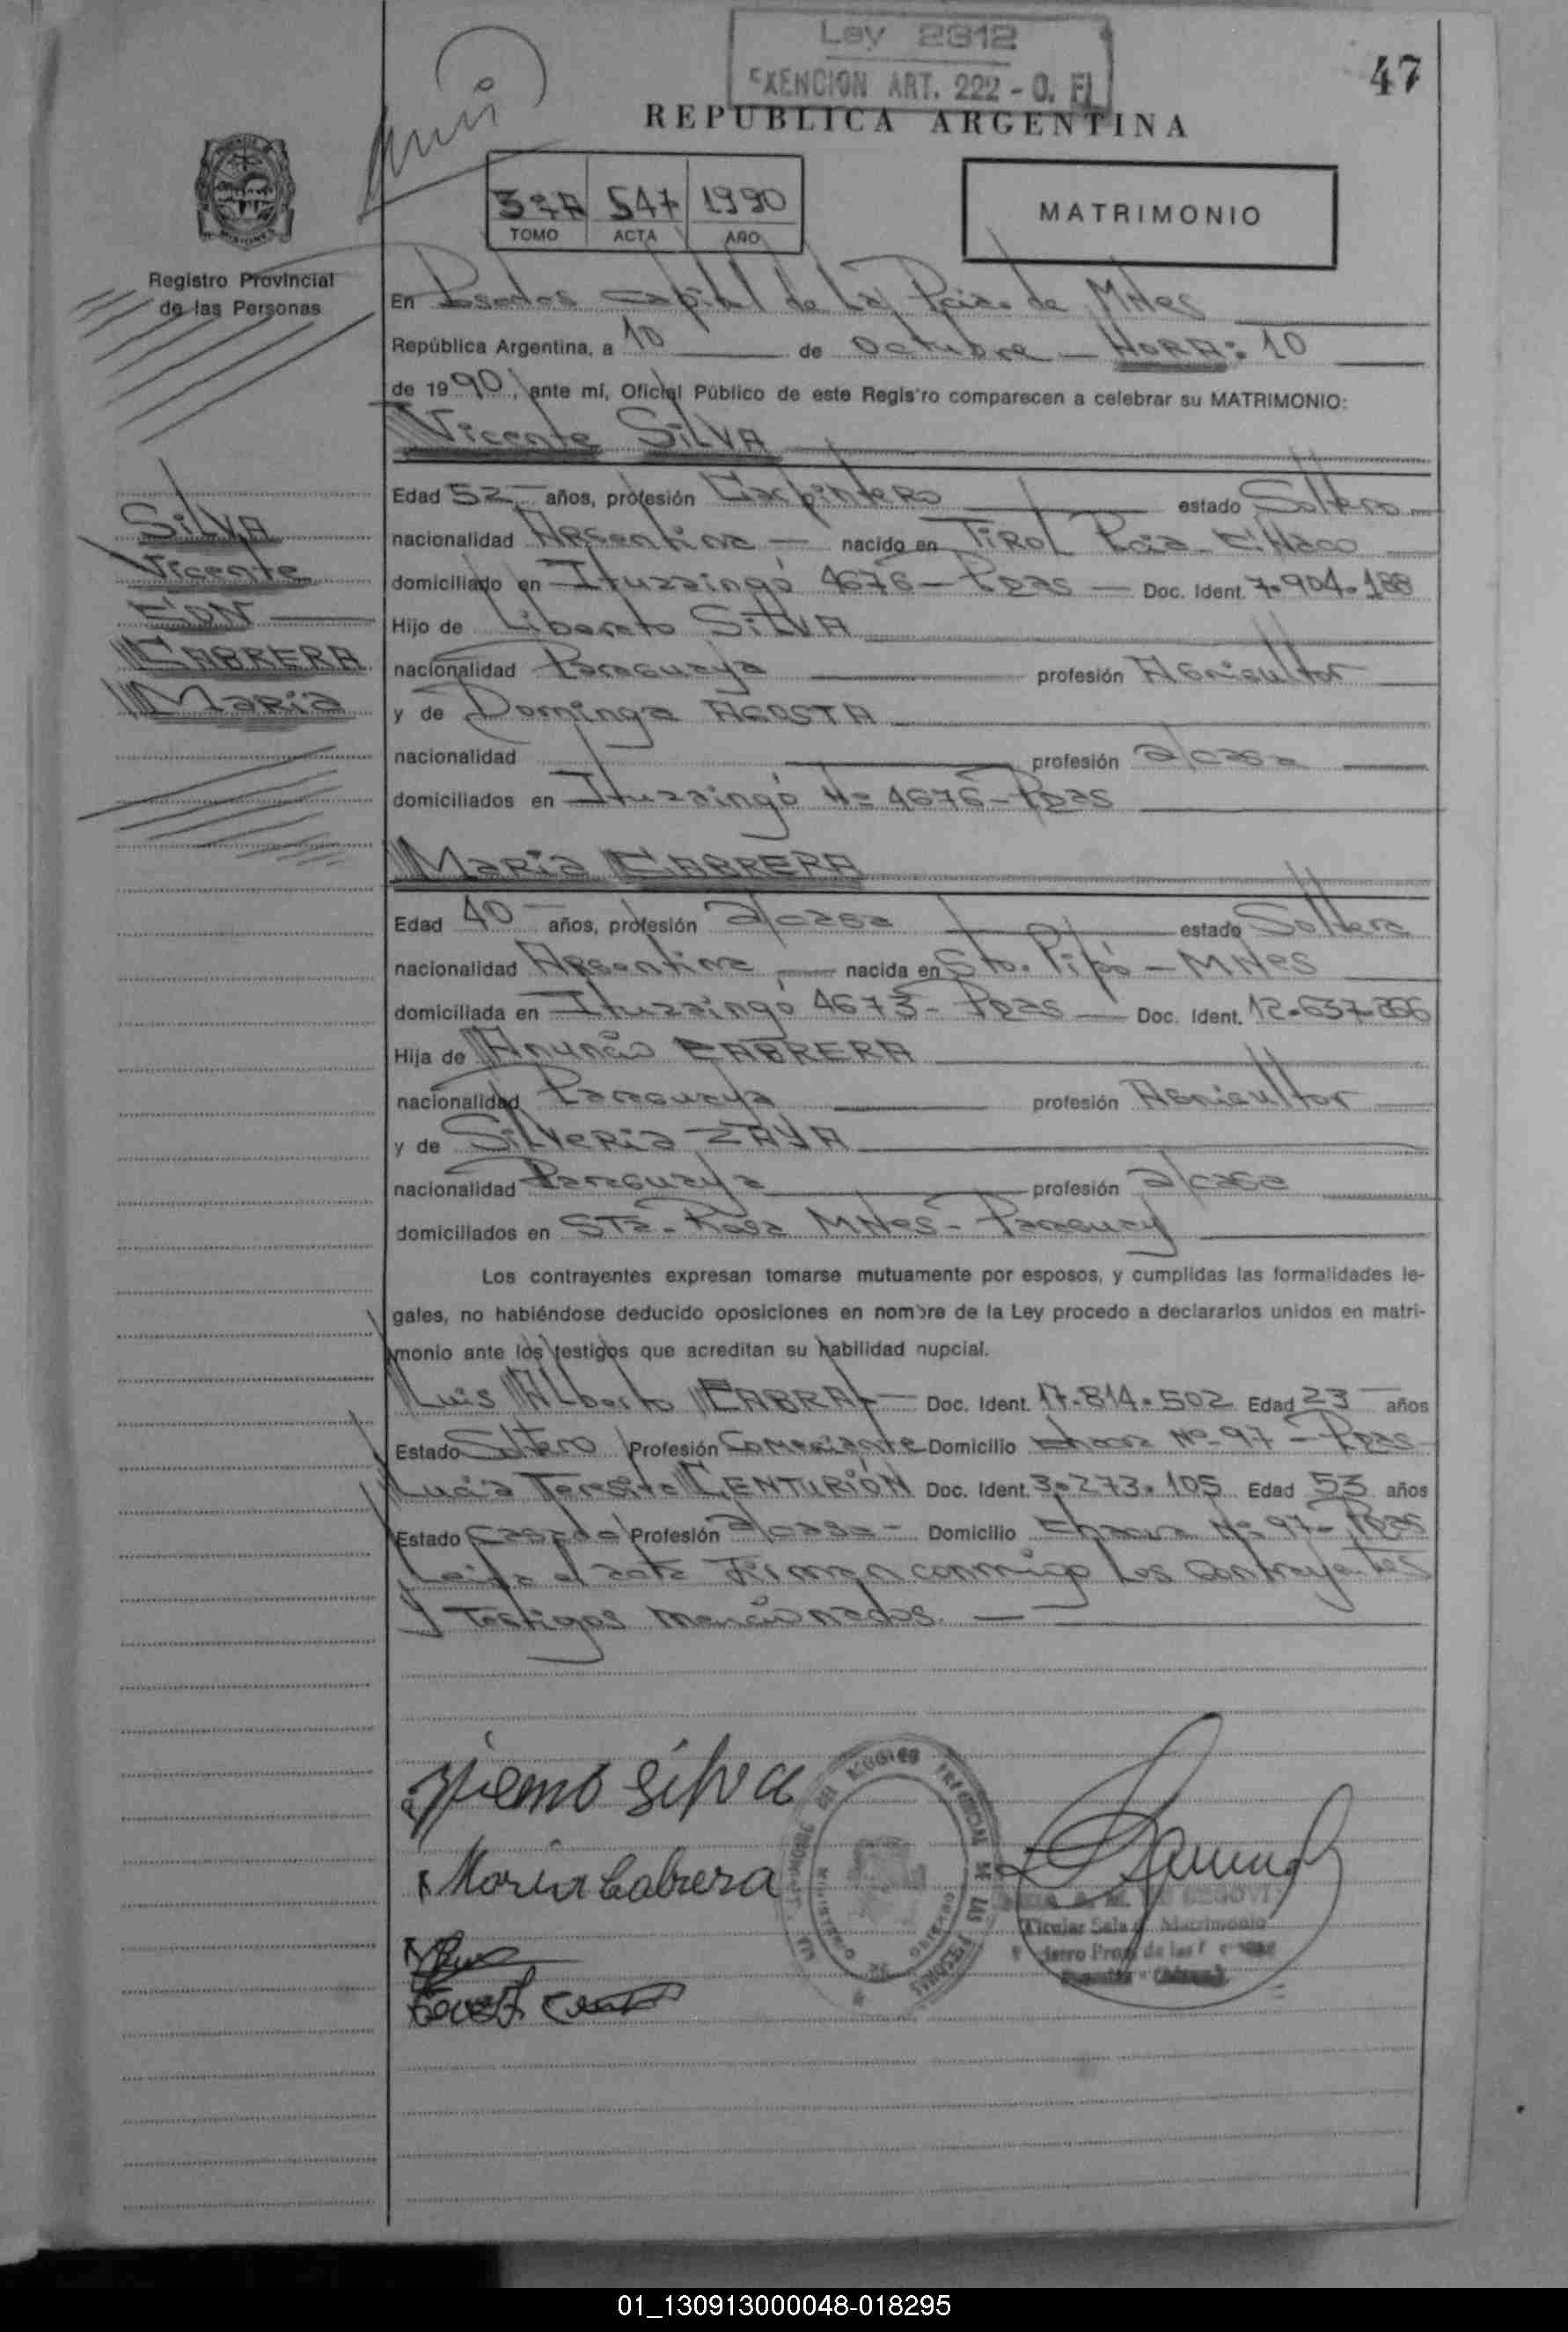 Ley 2312
EXENCION ART. 222 - O. F.
47
REPUBLICA ARGENTINA
547 1990
TOMO ACTA AÑO
MATRIMONIO
Registro Provincial
de las Personas
En Posadas capital de La Pcia. de MNes
República Argentina, a 10 de Octubre - HORA: 10
de 1990, ante mí, Oficial Público de este Registro comparecen a celebrar su MATRIMONIO:
Vicente SILVA
SILVA
Vicente
CON
CABRERA
Maria
Edad 52 años, profesión Carpintero estado Soltero
nacionalidad Argentina - nacido en TIROL Pcia. CHaco
domiciliado en Ituzaingó 4676 - Pdas - Doc. Ident. 7.904.188
Hijo de Liberato SILVA
nacionalidad Paraguaya profesión Agricultor
y de Dominga AGOSTA
nacionalidad profesión a/casa
domiciliados en Ituzaingó Nº 4676 - Pdas
Maria CABRERA
Edad 40 años, profesión a/casa estado Soltera
nacionalidad Argentina nacida en Sto. Pipó - MNes
domiciliada en Ituzaingó 4673 - Pdas - Doc. Ident. 12.637.266
Hija de Anuncio CABRERA
nacionalidad Paraguaya profesión Agricultor
y de Silveria ZAYA
nacionalidad Paraguaya profesión a/casa
domiciliados en Sta. Rosa MNes - Paraguay
Los contrayentes expresan tomarse mutuamente por esposos, y cumplidas las formalidades le-
gales, no habiéndose deducido oposiciones en nombre de la Ley procedo a declararlos unidos en matri-
monio ante los testigos que acreditan su habilidad nupcial.
Luis Alberto CABRAL - Doc. Ident. 17.814.502 Edad 23 años
Estado Soltero Profesión Comerciante Domicilio chacra Nº 97 - Pdas
Lucia Teresita CENTURIÓN Doc. Ident. 3.273.105 Edad 53 años
Estado Casada Profesión a/casa - Domicilio chacra Nº 97 - Pdas
Leida el acta Firman conmigo Los contrayentes
y Testigos mencionados. -
Silva
Maria Cabrera
Titular Sala Matrimonio
01_130913000048-018295